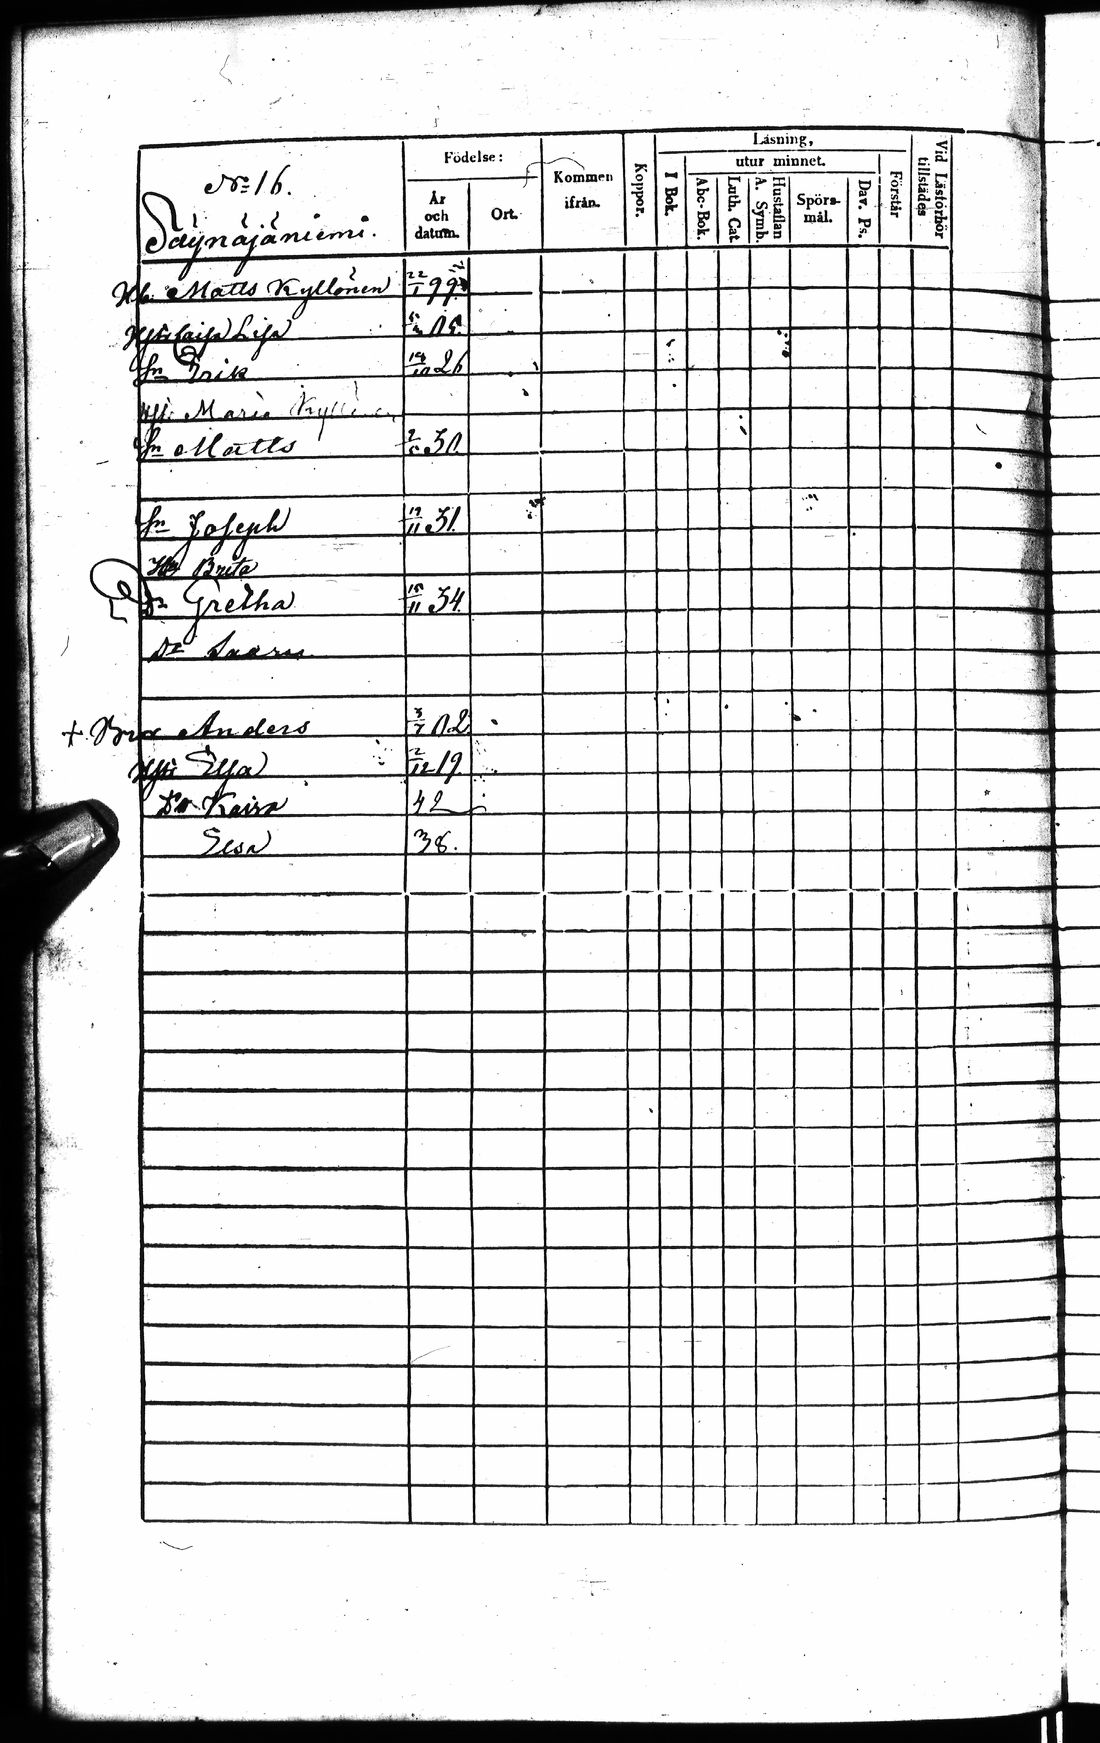 No 16.
Säynäjäniemi.
Födelse:
År och datum.
Ort.
Kommen ifrån.
Koppor.
Läsning,
I Bok.
utur minnet.
Abc-Bok.
Luth. Cat.
Hustaflan A. Symb.
Spörsmål.
Dav. Ps.
Förstår
Vid Läsförhör tillstädes
Hb. Matts Kyllönen 22/1 99.
Hstr Caisa Lisa 05.
Sn Erik 26
Hst. Maria Kyllönen
Sn Matts 30.
Sn Joseph 19/11 31.
Brita
Dr Gretha 15/11 34.
Dr Saara
+ Bror Anders 3/7 02
Hstr Elsa 2/12 19
Dr Kaisa 42
Elsa 38.